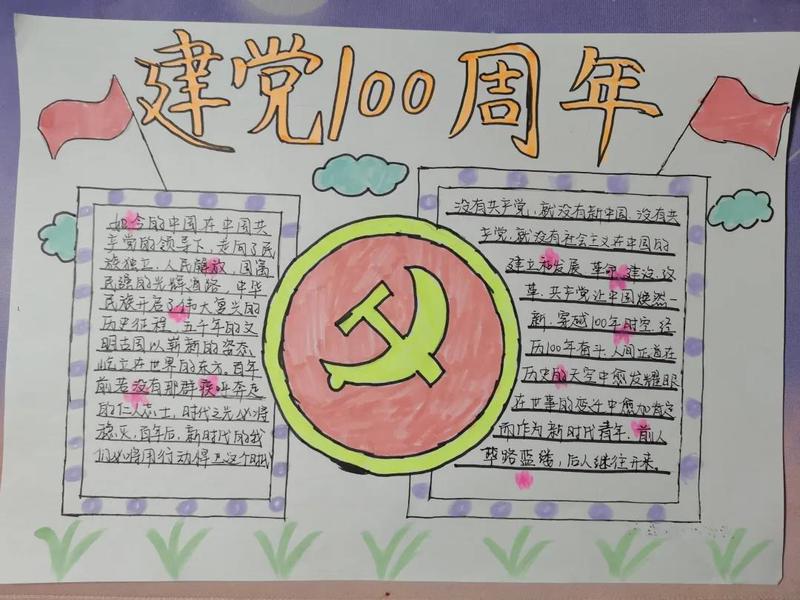 建党100周年
如今的中国在中国共
产党的领导下,走向了民
族独立,人民解放,国富
民强的光辉道路,中华
民族开启了伟大复兴的
历史征程,五千年的文
明古国以崭新的姿态,
屹立在世界的东方,百年
前若没有那群疾呼奔走
的仁人志士,时代之光必将
熄灭,百年后,新时代的我
们必将用行动捍卫这个时代
没有共产党,就没有新中国,没有共
产党,就没有社会主义在中国的
建立和发展,革命,建设,改
革,共产党让中国焕然一
新,穿越100年时空,经
历100年奋斗,人间正道在
历史的天空中愈发耀眼
在世事的变迁中愈加肯定
而作为新时代青年,前人
筚路蓝缕,后人继往开来。